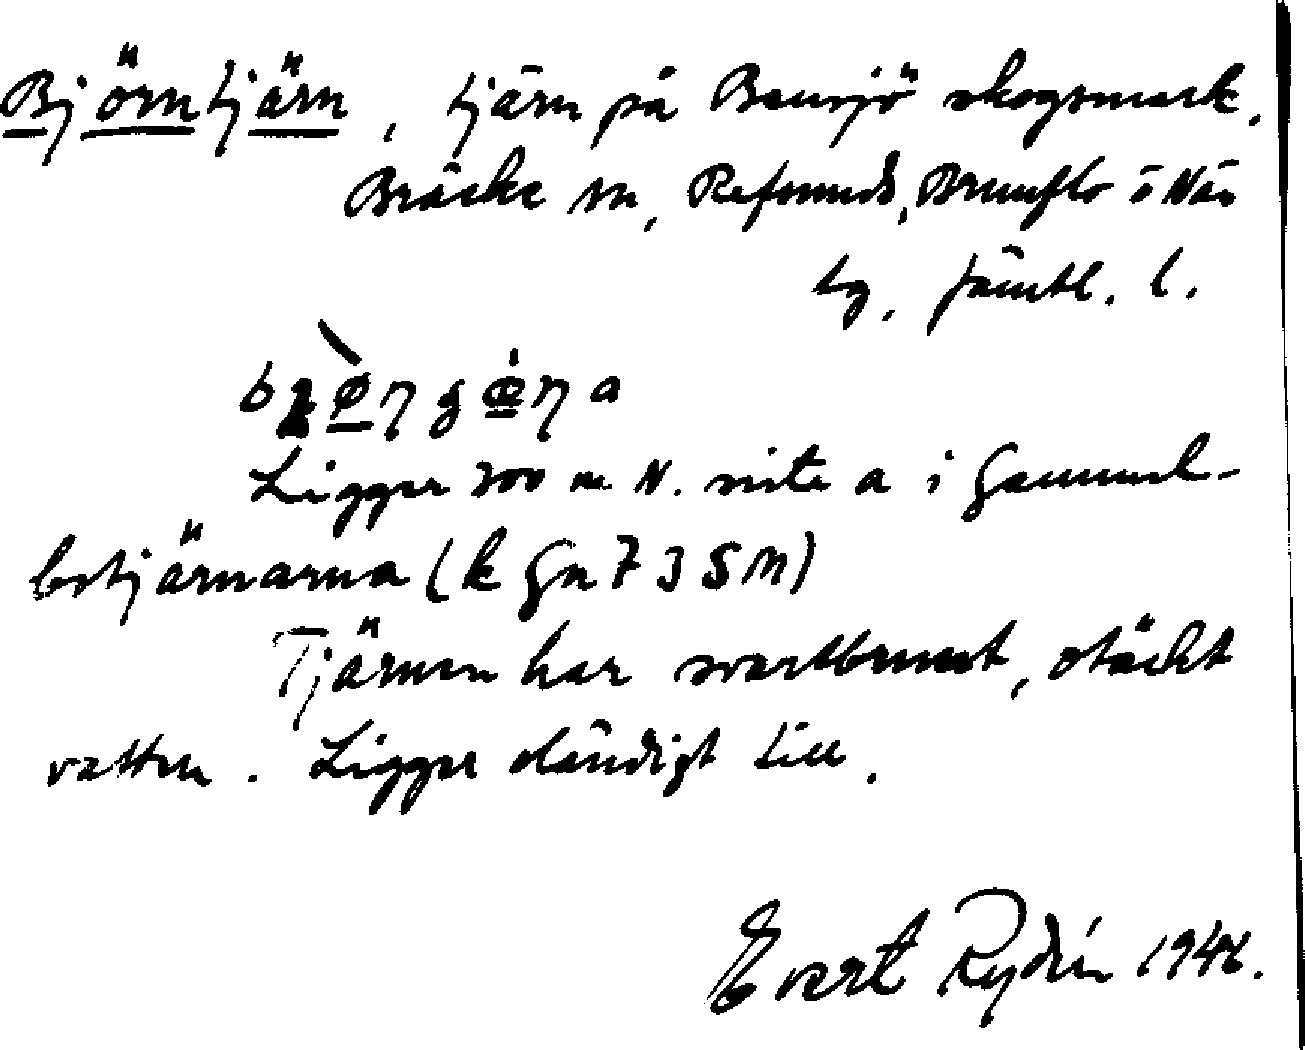 Björntjärn, tjärn på Bensjö skogsmark.
Bräcke sn, Refsunds, Brunflo o Näs
tg. Jämtl. l.
Ligger 300 m N. a i Gammel-
botjärnarna (k Gn 7 3 S M)
Tjärnen har svartbrunt, otäckt
vatten. Ligger oländigt till.
Evert Rydén 1946.